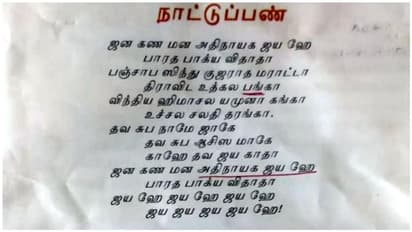 நாட்டுப்பண்
ஜன கண மன அதிநாயக ஜய ஹே
பாரத பாக்ய விதாதா
பஞ்சாப ஸிந்து குஜராத மராட்டா
திராவிட உத்கல பங்கா
விந்திய ஹிமாசல யமுனா கங்கா
உச்சல சலதி தரங்கா.
தவ சுப நாமே ஜாகே
தவ சுப ஆசிஸ மாகே
காஹே தவ ஜய காதா
ஜன கண மன அதிநாயக ஜய ஹே
பாரத பாக்ய விதாதா
ஜய ஹே ஜய ஹே ஜய ஹே
ஜய ஜய ஜய ஜய ஹே!